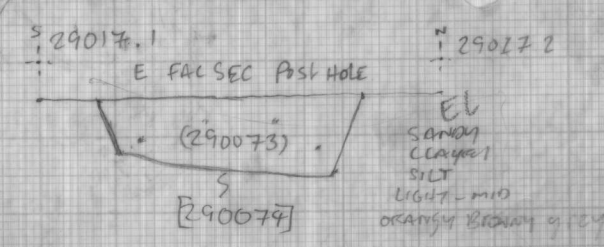 S 29017.1
N 29017 2
E FAC SEC POST HOLE
(290073)
[290074]
SANDY
CLAYEY
SILT
LIGHT-MID
ORANGY BROWNY GREY